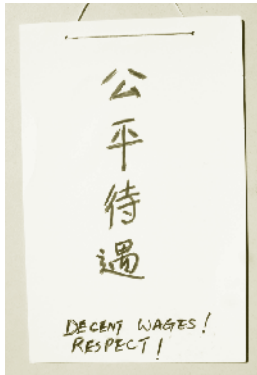 公平待遇
DECENT WAGES!
RESPECT!